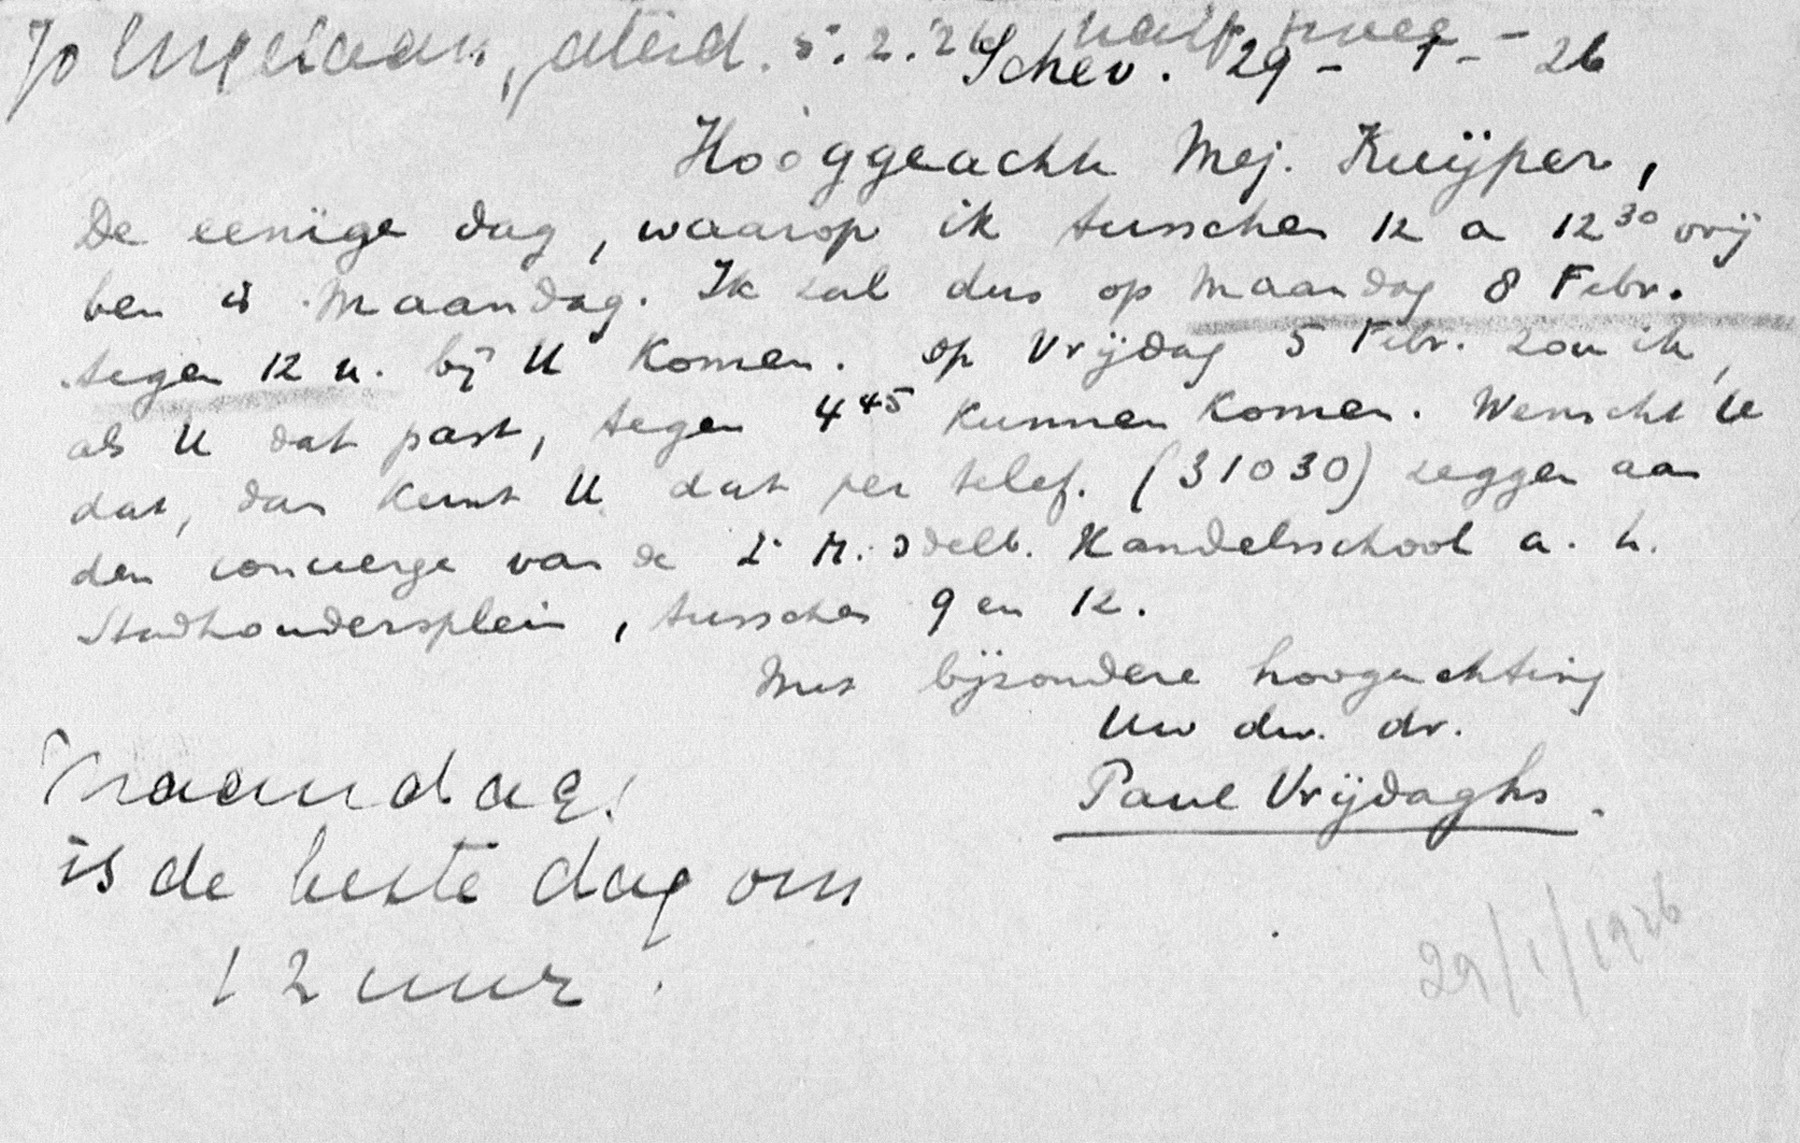 5.2.26 half twee -
Schev. 29 - 1 - 26
Hooggeachte Mej. Kuÿper,
De eenige dag, waarop ik tusschen 12 a 12³⁰ vrij
ben is Maandag. Ik zal dus op Maandag 8 Febr.
tegen 12 u. bij U komen. Op Vrijdag 5 Febr. zou ik,
als U dat past, tegen 4⁴⁵ kunnen komen. Wenscht U
dat, dan kunt U dat per telef. (31030) zeggen aan
den concierge van de 2e Middelb. Handelsschool a. h.
Stadhoudersplein, tusschen 9 en 12.
Met bijzondere hoogachting
Uw dw. dr.
Paul Vrijdaghs.
Maandag
is de beste dag om
12 uur.
29/1/1926